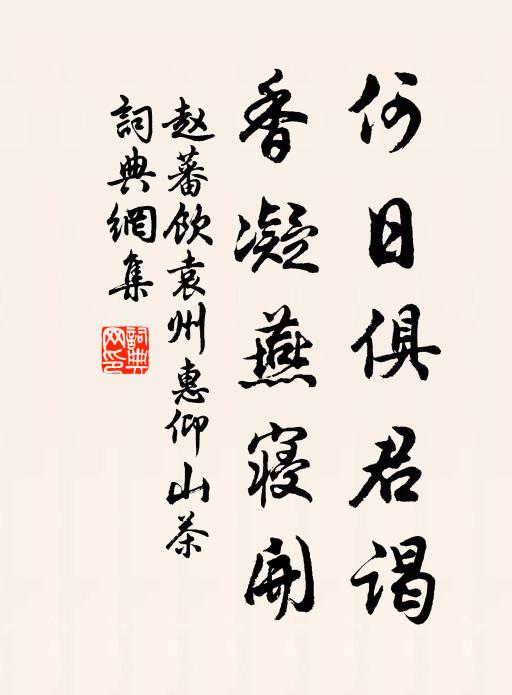 何日俱君谒
香凝燕寝開
赵蕃飲袁州惠仰山茶
詞典網集
詞典网印